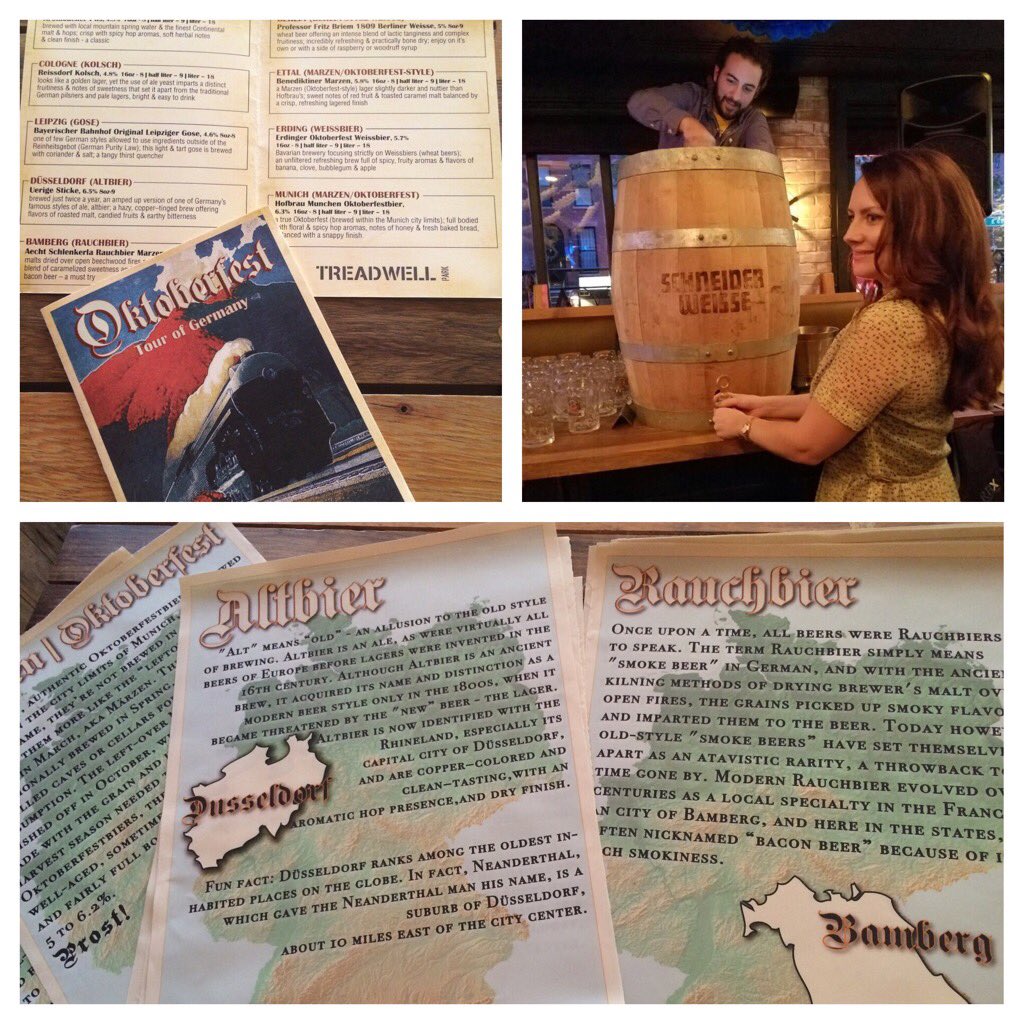 brewed with local mountain spring water & the finest Continental
malt & hops; crisp with spicy hop aromas, soft herbal notes
& clean finish - a classic
COLOGNE (KOLSCH)
Reissdorf Kolsch, 4.8% 16oz - 8 | half liter - 9 | liter - 18
looks like a golden lager, yet the use of ale yeast imparts a distinct
fruitiness & notes of sweetness that set it apart from the traditional
German pilsners and pale lagers, bright & easy to drink
LEIPZIG (GOSE)
Bayerischer Bahnhof Original Leipziger Gose, 4.6% 8oz-8
one of few German styles allowed to use ingredients outside of the
Reinheitsgebot (German Purity Law); this light & tart gose is brewed
with coriander & salt; a tangy thirst quencher
DÜSSELDORF (ALTBIER)
Uerige Sticke, 6.5% 8oz-9
brewed just twice a year, an amped up version of one of Germany's
famous styles of ale, altbier; a hazy, copper-tinged brew offering
flavors of roasted malt, candied fruits & earthy bitterness
BAMBERG (RAUCHBIER)
Aecht Schlenkerla Rauchbier Marze
malts dried over open beechwood fires
blend of caramelized sweetness
bacon beer - a must try
Professor Fritz Briem 1809 Berliner Weisse, 5% 8oz-9
wheat beer offering an intense blend of lactic tanginess and complex
fruitiness; incredibly refreshing & practically bone dry; enjoy on it's
own or with a side of raspberry or woodruff syrup
ETTAL (MARZEN/OKTOBERFEST-STYLE)
Benediktiner Marzen, 5.9% 16oz - 8 | half liter - 9 | liter - 18
a Marzen (Oktoberfest-style) lager slightly darker and nuttier than
Hofbrau's; sweet notes of red fruit & toasted caramel malt balanced by
a crisp, refreshing lagered finish
ERDING (WEISSBIER)
Erdinger Oktoberfest Weissbier, 5.7%
16oz - 8 | half liter - 9 | liter - 18
Bavarian brewery focusing strictly on Weissbiers (wheat beers);
an unfiltered refreshing brew full of spicy, fruity aromas & flavors of
banana, clove, bubblegum & apple
MUNICH (MARZEN/OKTOBERFEST)
Hofbrau Munchen Oktoberfestbier,
6.3% 16oz - 8 | half liter - 9 | liter - 18
true Oktoberfest (brewed within the Munich city limits), full bodied
with floral & spicy hop aromas, notes of honey & fresh baked bread,
with a snappy finish.
TREADWELL PARK
Oktoberfest
Tour of Germany
SCHNEIDER
WEISSE
| Oktoberfest
AUTHENTIC OKTOBERFESTBIE
THE CITY LIMITS OF MUNICH.
BREWED IN
THEM MORE LIKE THE "LEFTO
IN MARCH, AKA MARZEN. TH
BREWED IN SPRING
CAVES OR CELLARS FO
THE LEFT-OVER
IN OCTOBER, W
WITH THE GRAIN AND
HARVEST SEASON NEEDED
OKTOBERFESTBIERS, THE
WELL-AGED, SOMETIME
AND FAIRLY FULL BO
5 TO 6.2%.
Prost!
Altbier
"ALT" MEANS "OLD" - AN ALLUSION TO THE OLD STYLE
OF BREWING. ALTBIER IS AN ALE, AS WERE VIRTUALLY ALL
BEERS OF EUROPE BEFORE LAGERS WERE INVENTED IN THE
16TH CENTURY. ALTHOUGH ALTBIER IS AN ANCIENT
BREW, IT ACQUIRED ITS NAME AND DISTINCTION AS A
MODERN BEER STYLE ONLY IN THE 1800S, WHEN IT
BECAME THREATENED BY THE "NEW" BEER - THE LAGER.
ALTBIER IS NOW IDENTIFIED WITH THE
RHINELAND, ESPECIALLY ITS
CAPITAL CITY OF DÜSSELDORF,
AND ARE COPPER-COLORED AND
CLEAN-TASTING, WITH AN
AROMATIC HOP PRESENCE, AND DRY FINISH.
Dusseldorf
FUN FACT: DÜSSELDORF RANKS AMONG THE OLDEST IN-
HABITED PLACES ON THE GLOBE. IN FACT, NEANDERTHAL,
WHICH GAVE THE NEANDERTHAL MAN HIS NAME, IS A
SUBURB OF DÜSSELDORF,
ABOUT 10 MILES EAST OF THE CITY CENTER.
Rauchbier
ONCE UPON A TIME, ALL BEERS WERE RAUCHBIERS
TO SPEAK. THE TERM RAUCHBIER SIMPLY MEANS
"SMOKE BEER" IN GERMAN, AND WITH THE ANCIEN
KILNING METHODS OF DRYING BREWER'S MALT OV
OPEN FIRES, THE GRAINS PICKED UP SMOKY FLAVO
AND IMPARTED THEM TO THE BEER. TODAY HOWE
OLD-STYLE "SMOKE BEERS" HAVE SET THEMSELV
APART AS AN ATAVISTIC RARITY, A THROWBACK T
TIME GONE BY. MODERN RAUCHBIER EVOLVED OV
CENTURIES AS A LOCAL SPECIALTY IN THE FRANC
AN CITY OF BAMBERG, AND HERE IN THE STATES,
FTEN NICKNAMED "BACON BEER" BECAUSE OF I
CH SMOKINESS.
Bamberg